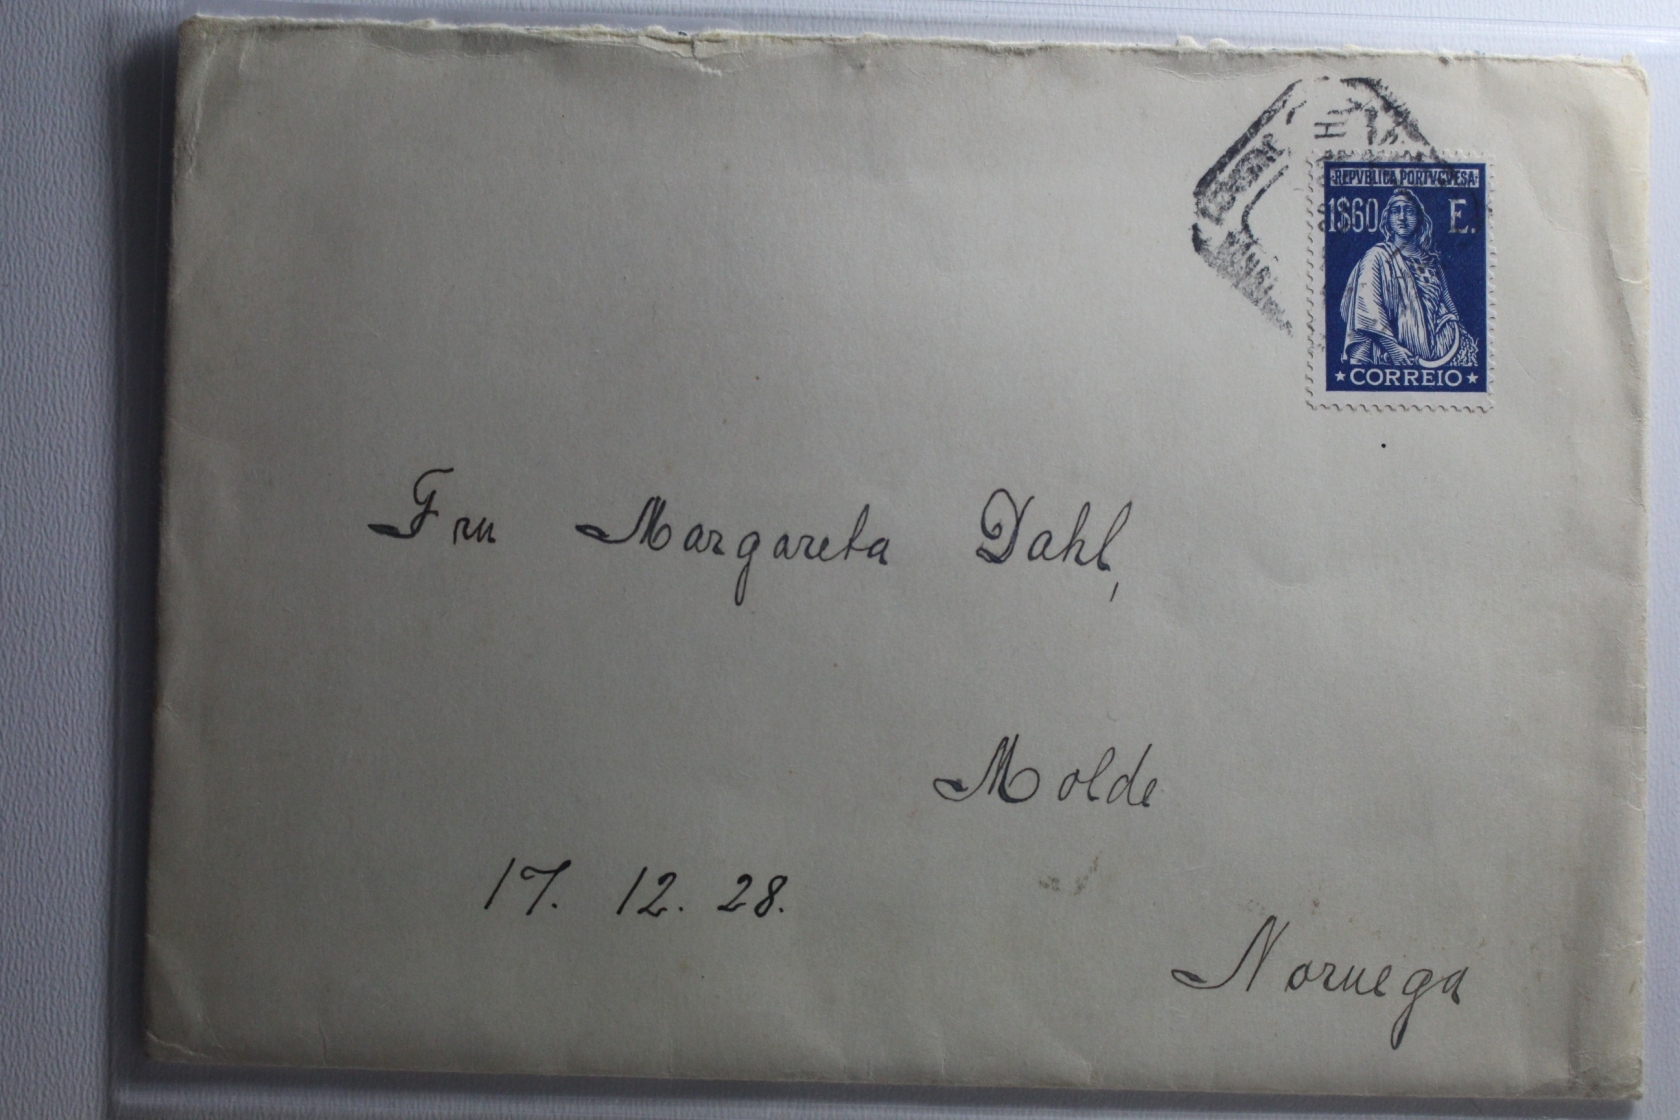 REPVBLICA PORTVGVESA
1$60 E.
CORREIO
Fru Margareta Dahl,
Molde
17. 12. 28.
Noruega